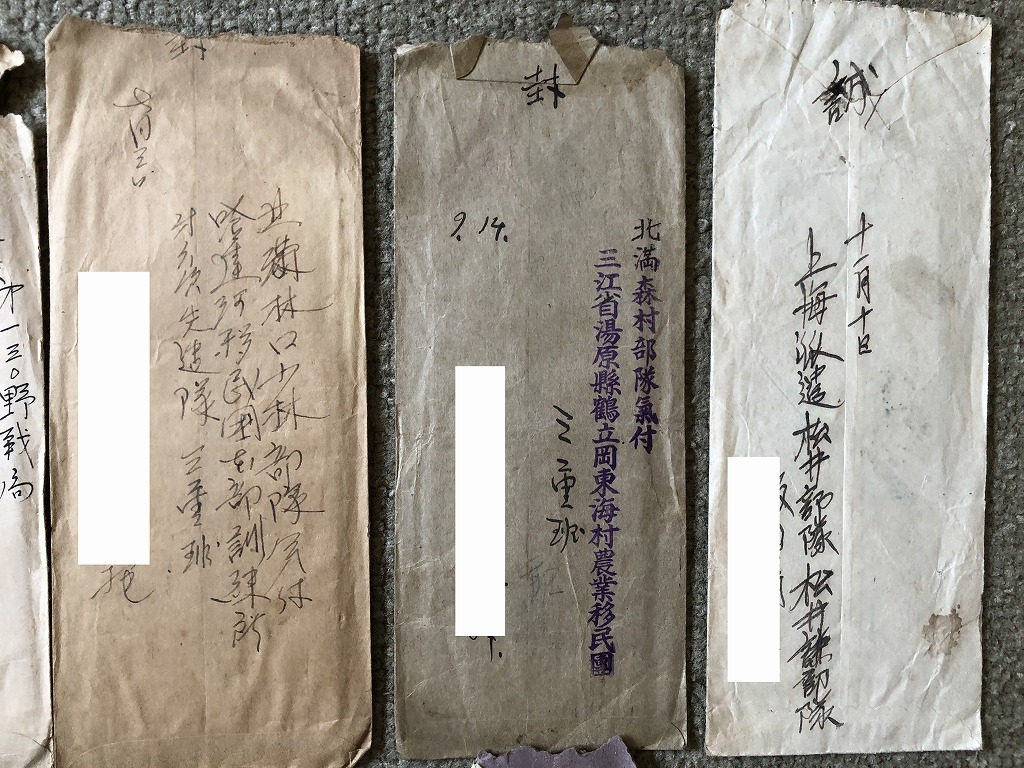 誠
十一月十日
上海派遣 松井部隊 松井謙部隊
封
北満森村部隊氣付
三江省湯原縣鶴立岡東海村農業移民團
三重班
9.14.
封
林口小林部隊気付
哈達河移民団本部訓練所
先遣隊 三重班
一三〇野戦局